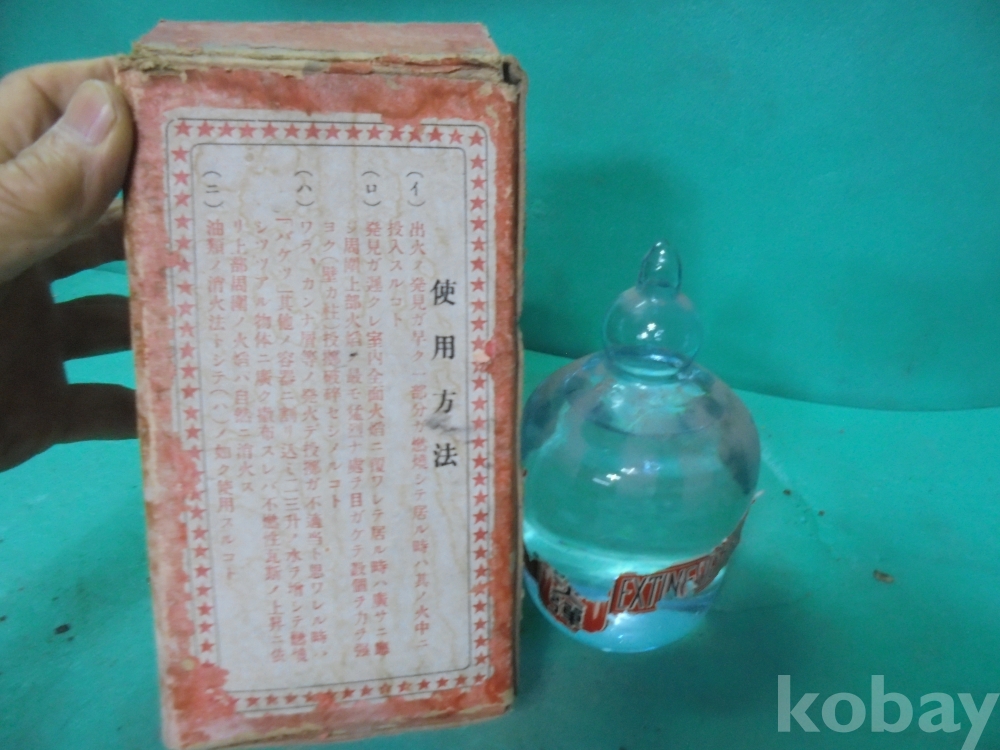 使用方法
(イ) 出火ノ発見ガ早ク一部分ガ燃焼シテ居ル時ハ其ノ火中ニ
投入スルコト
(ロ) 発見ガ遅クレ室内全面火焔ニ覆ワレテ居ル時ハ廣サニ
シ周囲上部火焔ノ最モ猛烈ナ
ヨク(壁カ柱)投擲破砕セシメルコト
(ハ) ワラ、カンナ屑等ノ発火デ投擲ガ不適当ト思ワレル時ハ
「バケツ」其他ノ容器ニ割リ込ミ二三升ノ水ヲ増シテ
シツツアル物体ニ廣ク撒布スレバ不燃性瓦斯ノ上昇ニ依
リ上部周囲ノ火焔ハ自然ニ消火ス
(ニ) 油類ノ消火法トシテ(ハ)ノ如ク使用スルコト
弾
EXTIN
kobay